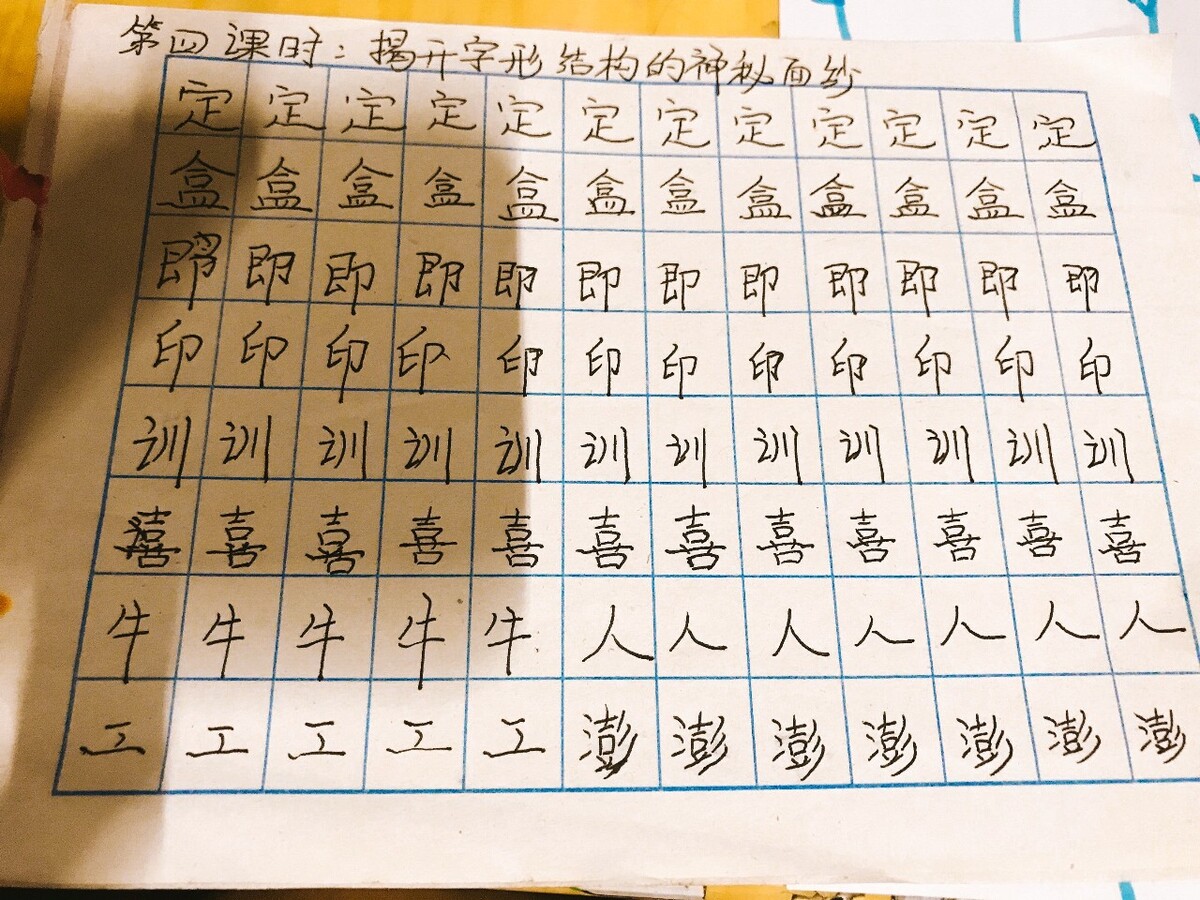 第四课时：揭开字形结构的神秘面纱
定定定定定定定定定定定定
盒盒盒盒盒盒盒盒盒盒盒盒
即即即即即即即即即即即即
印印印印印印印印印印印印
训训训训训训训训训训训训
喜喜喜喜喜喜喜喜喜喜喜喜
牛牛牛牛牛人人人人人人人
工工工工工澎澎澎澎澎澎澎